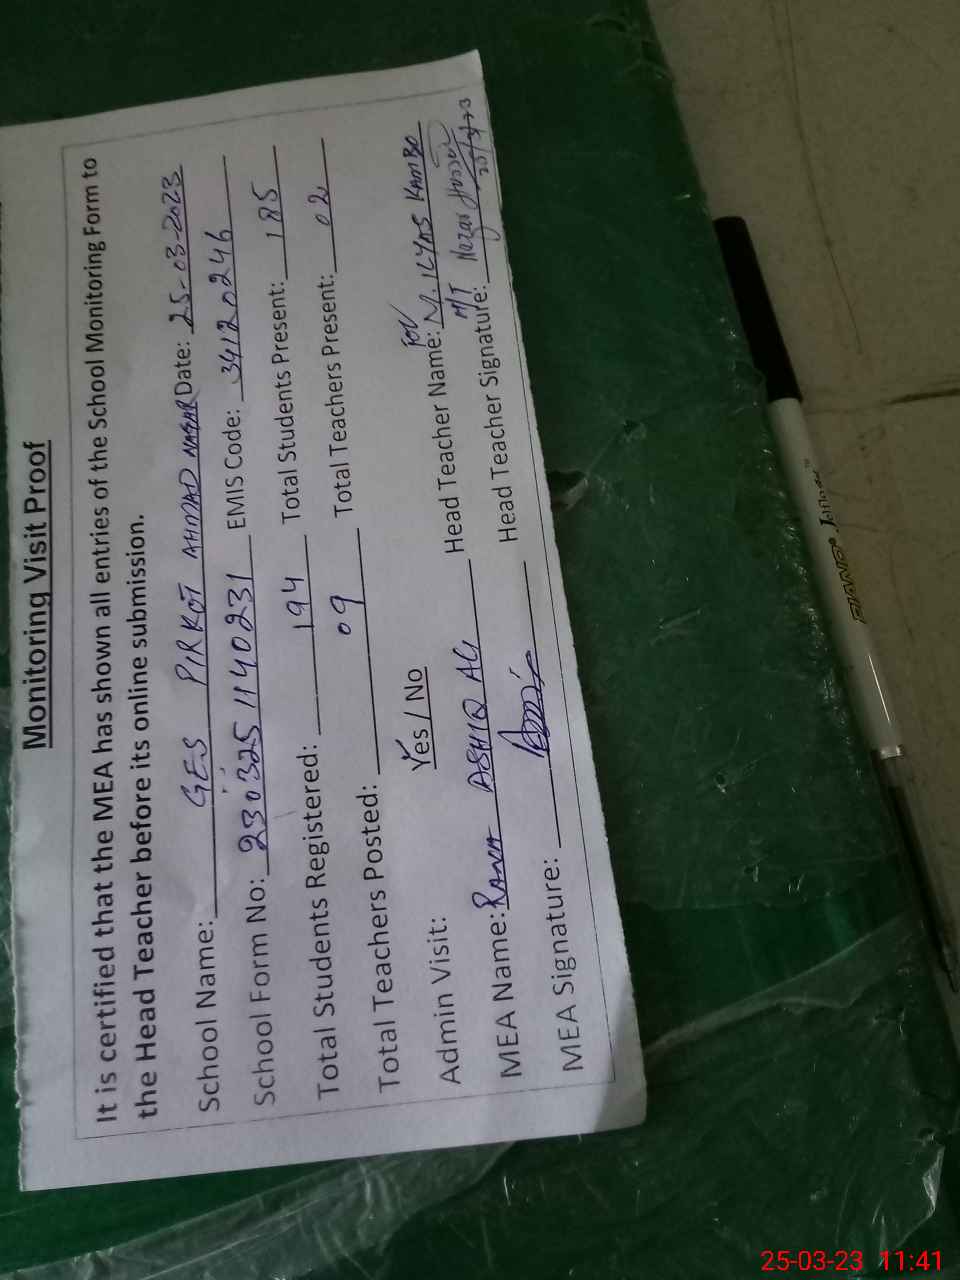 Monitoring Visit Proof
It is certified that the MEA has shown all entries of the School Monitoring Form to
the Head Teacher before its online submission.
School Name: GES PIRKOT AHMAD NAGAR Date: 25-03-2023
School Form No: 230325 1140231 EMIS Code: 34120246
Total Students Registered: 194 Total Students Present: 185
Total Teachers Posted: 09 Total Teachers Present: 02
Admin Visit: Yes / No
for
MEA Name: RANA ASHIQ ALI Head Teacher Name: M. ILYAS KAMBO
MEA Signature: Head Teacher Signature: Nazar Hussain
PIANO Jetflower™
25-03-23 11:41